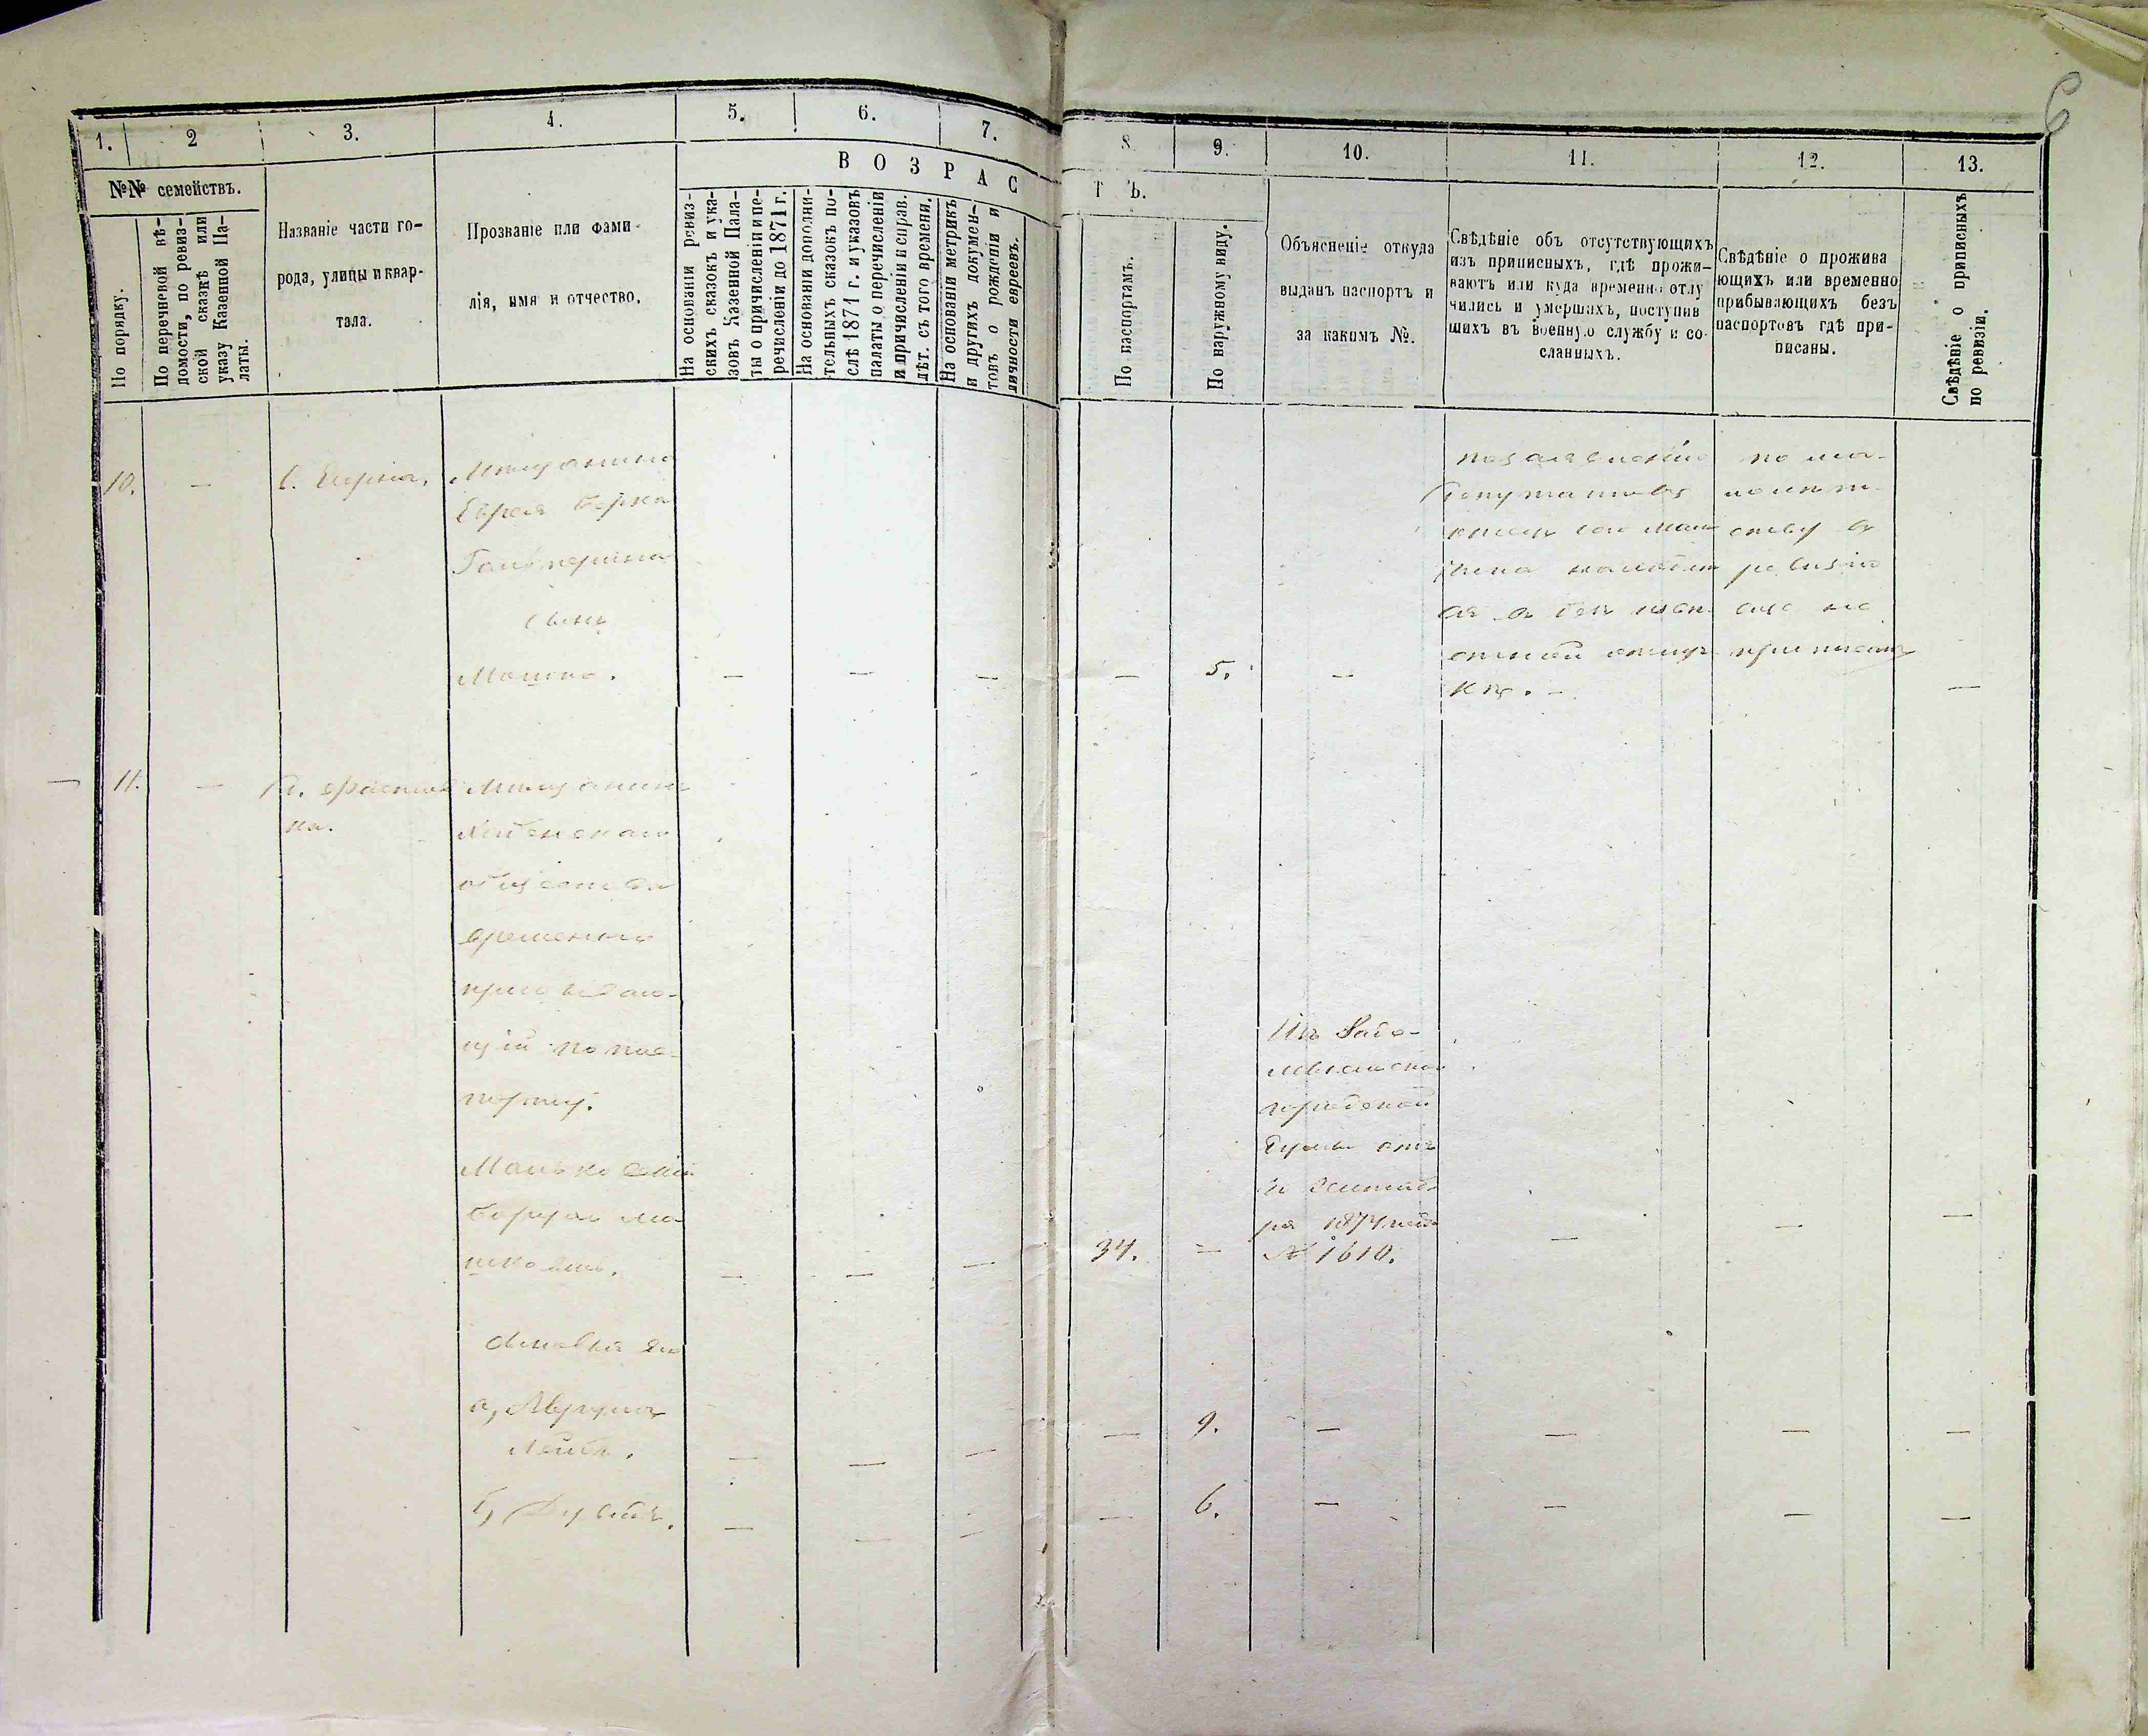 6
1.
2
3.
4.
5.
6.
7.
8.
9.
10.
11.
12.
13.
№№ семействъ.
По порядку.
По перечневой вѣ-
домости, по ревиз-
ской сказкѣ или
указу Казенной Па-
латы.
Названіе части го-
рода, улицы и квар-
тала.
Прозваніе или фами-
лія, имя и отчество.
ВОЗРАС
На основаніи ревиз-
скихъ сказокъ и ука-
зовъ Казенной Пала-
ты о причисленіи и пе-
речисленіи до 1871 г.
На основаніи дополни-
тельныхъ сказокъ по-
слѣ 1871 г. и указовъ
палаты о перечисленіи
и причисленіи и справ.
лѣт. съ того времени.
На основаніи метрикъ
и другихъ докумен-
товъ о рожденіи и
личности евреевъ.
Т Ъ.
По паспортамъ.
По наружному виду.
Объясненіе откуда
выданъ паспортъ и
за какимъ №.
Свѣдѣніе объ отсутствующихъ
изъ приписныхъ, гдѣ прожи-
ваютъ или куда временно отлу
чились и умершихъ, поступив
шихъ въ военную службу и со-
сланныхъ.
Свѣдѣніе о прожива
ющихъ или временно
прибывающихъ безъ
паспортовъ гдѣ при-
писаны.
Свѣдѣніе о приписныхъ
по ревизіи.
10.
—
Мѣщанина
Еврея Берка
Гальперина
сынъ
Мошко.
— — — — 5. —
по заявленію
Депутатовъ
кѣ. —
по ма-
лолѣт-
ству въ
ревизію
еще не
приписанъ
—
11.
—
Мѣщанинъ
общества
временно
прожываю-
щій по пас-
порту.
Маньковскій
— — —
34. —
Изъ Радо-
мысльской
городской
Думы отъ
ря 1874 года
№ 1610.
— — —
сыновья его
а, Аврумъ
Лейба.
— — — — 9. — — — —
б, Дувидъ.
— — — — 6. — — — —